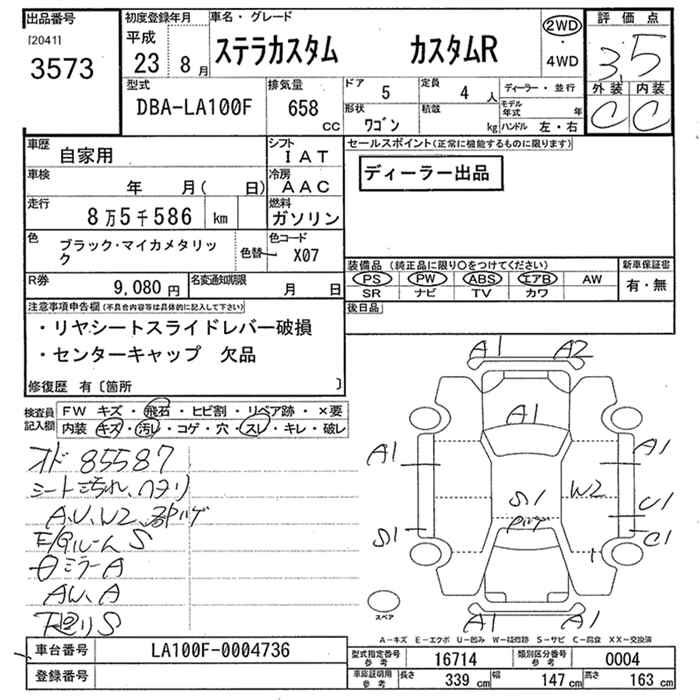 出品番号
[2041]
3573
初度登録年月
平成
23 8月
車名・グレード
ステラカスタム カスタムR
2WD
・
4WD
評価点
3.5
外装 内装
C C
型式
DBA-LA100F
排気量
658
CC
ドア
5
定員
4 人
形状
ワゴン
積載
kg
ディーラー・並行
モデル年式 年
ハンドル 左・右
車歴
自家用
シフト
IAT
車検
年 月( 日)
冷房
AAC
走行
8万5千586 km
燃料
ガソリン
色
ブラック・マイカメタリック
色替
色コード
X07
R券
9,080円
名変通知期限
月 日
セールスポイント(正常に機能するものに限ります)
ディーラー出品
装備品(純正品に限り○をつけてください)
PS PW ABS エアB AW
SR ナビ TV カワ
新車保証書
有・無
後日品
注意事項申告欄(不具合内容等は具体的に記入して下さい)
・リヤシートスライドレバー破損
・センターキャップ 欠品
修復歴 有〔箇所 〕
検査員記入欄
FW キズ・飛石・ヒビ割・リペア跡・×要
内装 キズ・汚レ・コゲ・穴・スレ・キレ・破レ
オド 85587
シートヨゴレ、ヘタリ
A、U、W2、
ルーム S
ミラーA
AW、A
下廻りS
A1 A2
A1
A1 A1
S1 W2 U1
S1 C1
A1 A1
スペア
A-キズ E-エクボ U-凹み W-補修跡 S-サビ C-腐食 XX-交換済
車台番号
LA100F-0004736
登録番号
型式指定番号
参考
16714
類別区分番号
参考
0004
車庫証明用
参考
長さ 339 cm 幅 147 cm 高さ 163 cm